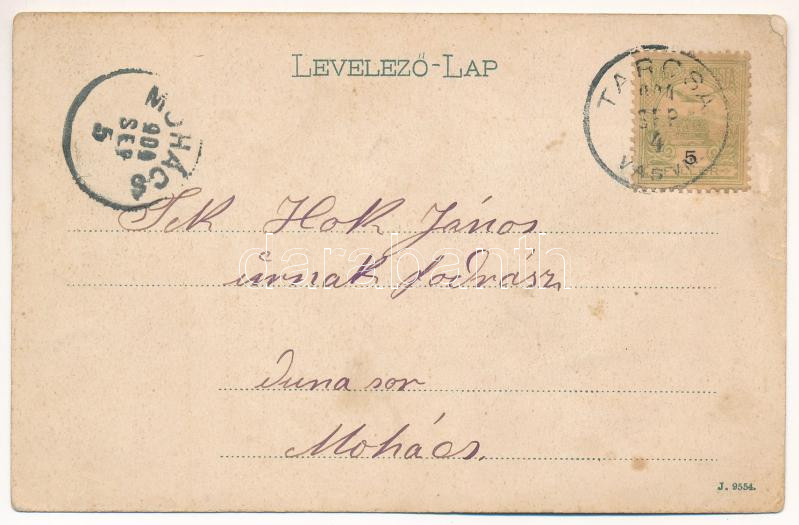 LEVELEZŐ-LAP
TARCSA
SEP
4
VAS VM
5
MOHÁCS
SEP
5
Tek Hok János
úrnak fodrász
duna sor
Mohács.
darabanth
J. 9554.